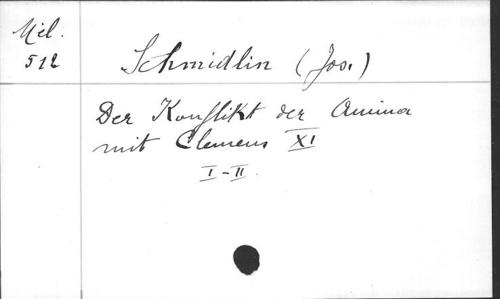 Mél.
512
Schmidlin (Jos.)
Der Konflikt der Anima
mit Clemens XI
I-II.